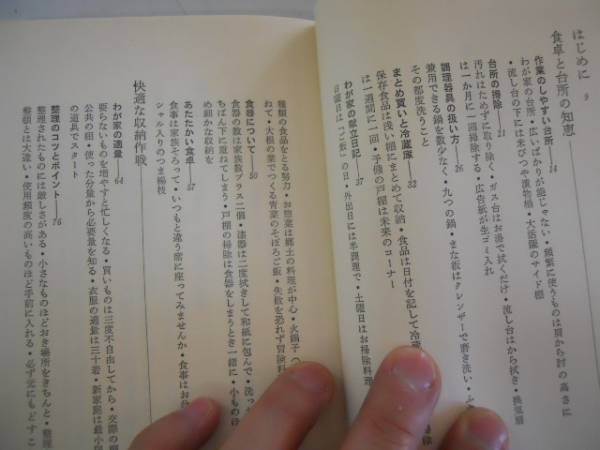 はじめに 9
食卓と台所の知恵
作業のしやすい台所 14
わが家の台所・広いばかりが能じゃない・頻繁に使うものは頂から肘の高さに
・流し台の下には米びつや漬物桶・大活躍のサイド棚
台所の掃除 21
汚れはためずに取り除く・ガス台はお湯で拭くだけ・流し台はから拭き・換気扇
は一か月に一回掃除する・広告紙が生ゴミ入れ
調理器具の扱い方 26
兼用できる鍋を数少なく・九つの鍋・まな板はクレンザーで磨き洗い・ふ
その都度洗うこと
まとめ買いと冷蔵庫 32
保存食品は浅い棚にまとめて収納・食品は日付を記して冷蔵
は一週間に一回・予備の戸棚は未来のコーナー
わが家の献立日記 37
日曜日は「ご飯」の日・外出日には半調理で・土曜日はお掃除料理
種類の食品をとる努力・お惣菜は郷土の料理が中心・火鍋子
ねて・大根の葉でつくる青菜のそぼろご飯・失敗を恐れず冒険料
食器について 50
食器の数は家族数プラス二個・漆器は二度拭きして和紙に包んで・洗っ
ちばん下に重ねてしまう・戸棚の掃除は食器をしまうとき一緒に・小ものけ
め細かな収納を
あたたかい食卓 57
食事は家族そろって・いつもと違う席に座ってみませんか・食事はお
シャル入りのつま楊枝
快適な収納作戦
わが家の適量 64
要らないものを増やすと忙しくなる・買いものは三度不自由してから・交際の
公共の紐・使った分量から必要量を知る・衣服の適量は三十着・新家庭は最小
の道具でスタート
整理のコツとポイント 76
整理されたものには厳しさがある・小さなものほどおき場所をきちんと・整
整頓とは大違い・使用頻度の高いものほど手前に入れる・必ず元にもどすこ